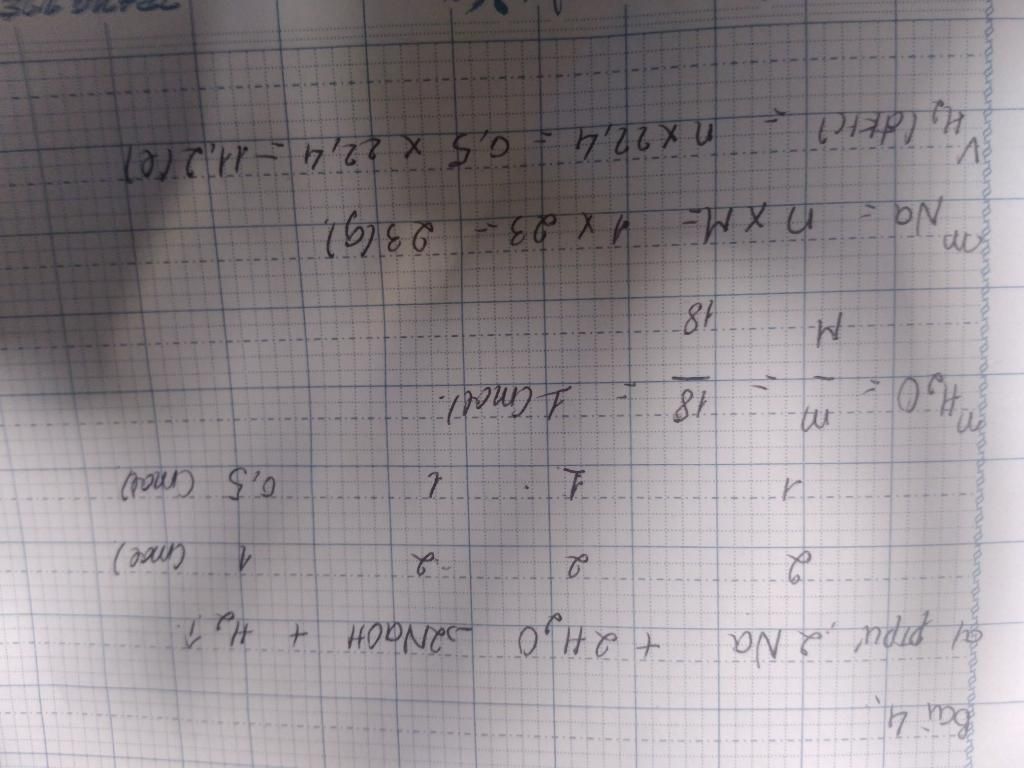 Bài 4:
a) ptpư: 2Na + 2H₂O → 2NaOH + H₂↑
2 2 2 1 (mol)
1 1 1 0,5 (mol)
nH₂O = m/M = 18/18 = 1 (mol).
mNa = n x M = 1 x 23 = 23(g)
VH₂(đktc) = n x 22,4 = 0,5 x 22,4 = 11,2(l)